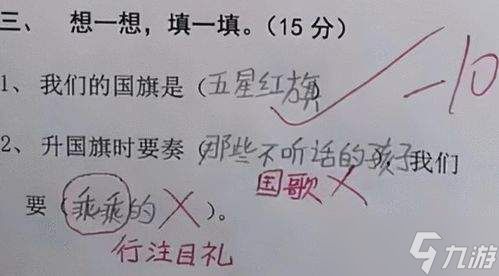 三、 想一想，填一填。（15分）
1、我们的国旗是（五星红旗 -10
2、升国旗时要奏（那些不听话的孩子我们
国歌
要（乖乖的 ）。
行注目礼
九游